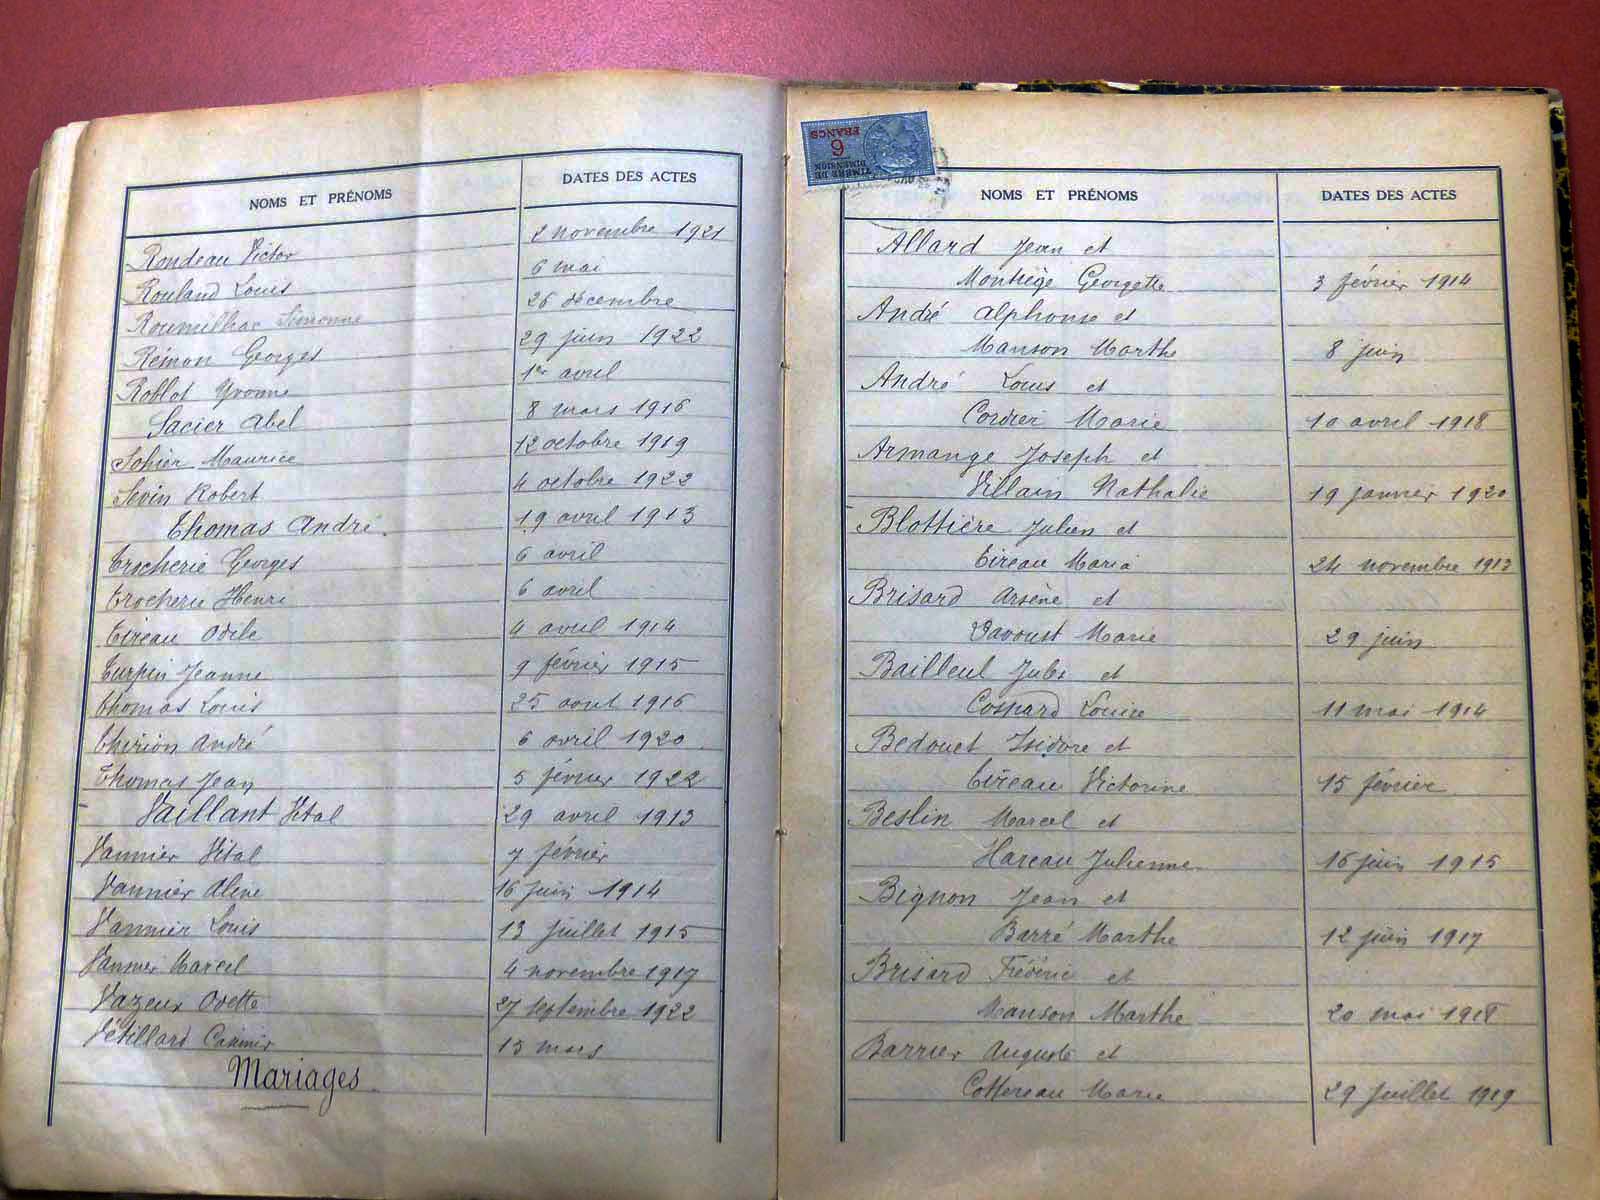 NOMS ET PRÉNOMS DATES DES ACTES
Rondeau Victor 2 novembre 1921
Rouland Louis 6 mai
Roumilhac Simonne 26 décembre
Rémon Georges 29 juin 1922
Roblot Yvonne 1er avril
Sacier Abel 8 mars 1916
Sohier Maurice 12 octobre 1919
Sevin Robert 4 octobre 1922
Thomas André. 19 avril 1913
Trocherie Georges 6 avril
Trocherie Henri 6 avril
Tireau Odile 4 avril 1914
Turpin Jeanne 9 février 1915
Thomas Louis 25 aout 1916
Thirion André 6 avril 1920
Thomas Jean 5 février 1922
Vaillant Vital 29 avril 1913
Vannier Vital 7 février
Vannier Aline 16 juin 1914
Vannier Louis 13 juillet 1915
Vannier Marcel 4 novembre 1917
Vazeux Odette 27 septembre 1922
Vétillard Casimir 15 mars
Mariages
TIMBRE DE DIMENSION
6
FRANCS
NOMS ET PRÉNOMS DATES DES ACTES
Allard Jean et
Montiège Georgette 3 février 1914
André Alphonse et
Manson Marthe 8 juin
André Louis et
Cordier Marie 10 avril 1918
Armange Joseph et
Villain Nathalie 19 janvier 1920
Blottière Julien et
Tireau Maria 24 novembre 1913
Brisard Arsène et
Davoust Marie 29 juin
Bailleul Jules et
Louise 11 mai 1914
Bedouet Isidore et
Tireau Victorine 15 février
Beslin Marcel et
Hareau Julienne 16 juin 1915
Bignon Jean et
Barré Marthe 12 juin 1917
Brisard Frédéric et
Manson Marthe 20 mai 1918
Barrier Auguste et
Cottereau Marie 29 juillet 1919